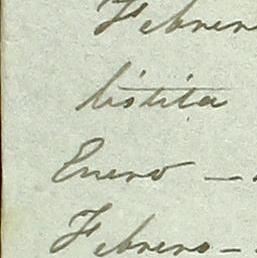 Febrero
listita
Enero —
Febrero —